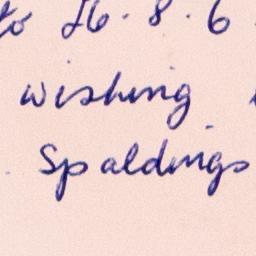 to 26.8.6
wishing
Spaldings